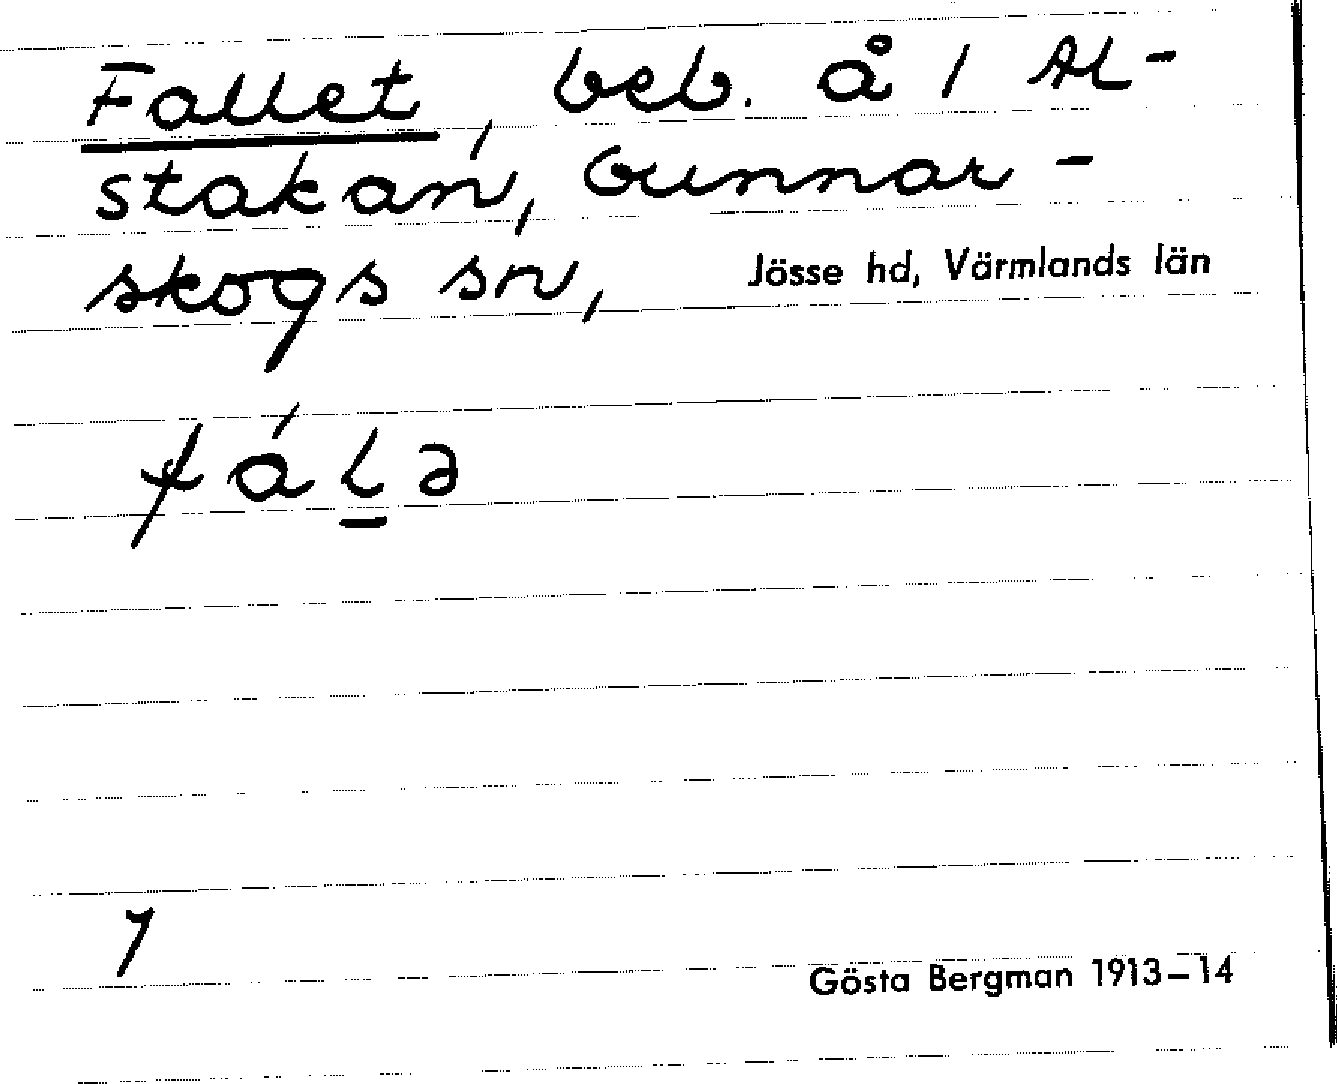 Fallet, beb. å 1 Al-
stakan, Gunnar-
skogs sn, Jössе hd, Värmlands län
fál̲ə
7
Gösta Bergman 1913–14